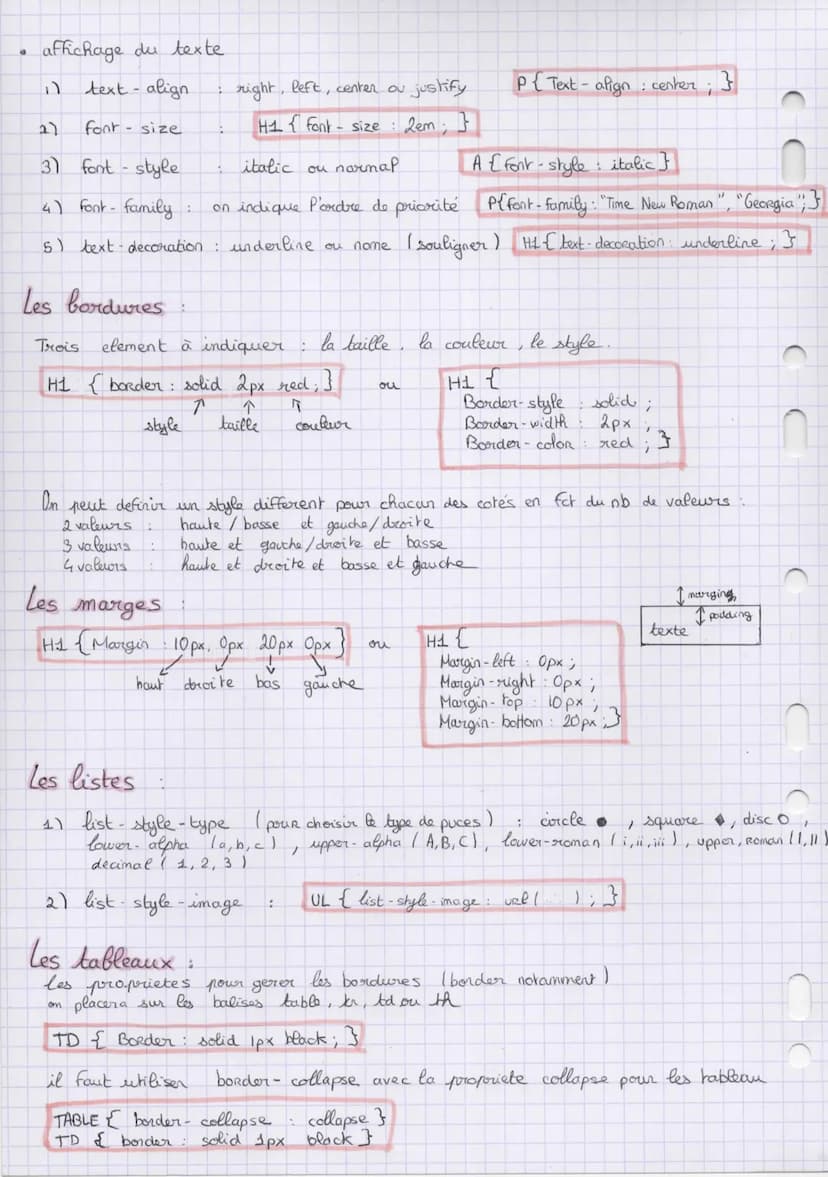 • affichage du texte
1) text-align : right, left, center ou justify P{ Text-align : center ; }
2) font-size : H1 { font-size : 2em ; }
3) font-style : italic ou normal A { font-style : italic }
4) font-family : on indique l'ordre de priorité P{font-family : "Time New Roman", "Georgia"; }
5) text-decoration : underline ou none (souligner) H1 { text-decoration : underline ; }
Les bordures :
Trois element à indiquer : la taille, la couleur, le style.
H1 { border : solid 2px red ; } ou H1 {
Border-style : solid ;
style taille couleur Boorder-width : 2px ;
Border-color : red ; }
On peut definir un style different pour chacun des cotés en fct du nb de valeurs :
2 valeurs : haute / basse et gauche / droite
3 valeurs : haute et gauche/droite et basse
4 valeurs : haute et droite et basse et gauche
Les marges :
marging
padding
texte
H1 { Margin : 10px, 0px 20px 0px } ou H1 {
haut droite bas gauche
Margin-left : 0px ;
Margin-right : 0px ;
Margin-top : 10px ;
Margin-bottom : 20px ; }
Les listes :
1) list-style-type (pour choisir le type de puces) : circle ●, square ◆, disc O,
lower-alpha (a, b, c), upper-alpha (A, B, C), lower-roman (i, ii, iii), upper, roman (I, II)
decimal (1, 2, 3)
2) list-style-image : UL { list-style-image : url ( ) ; }
Les tableaux :
les proprietes pour gerer les bordures (border notamment)
on placera sur les balises table, tr, td ou th
TD { Border : solid 1px black ; }
il faut utiliser border-collapse avec la propriete collapse pour les tableau
TABLE { border-collapse : collapse }
TD { border : solid 1px black }